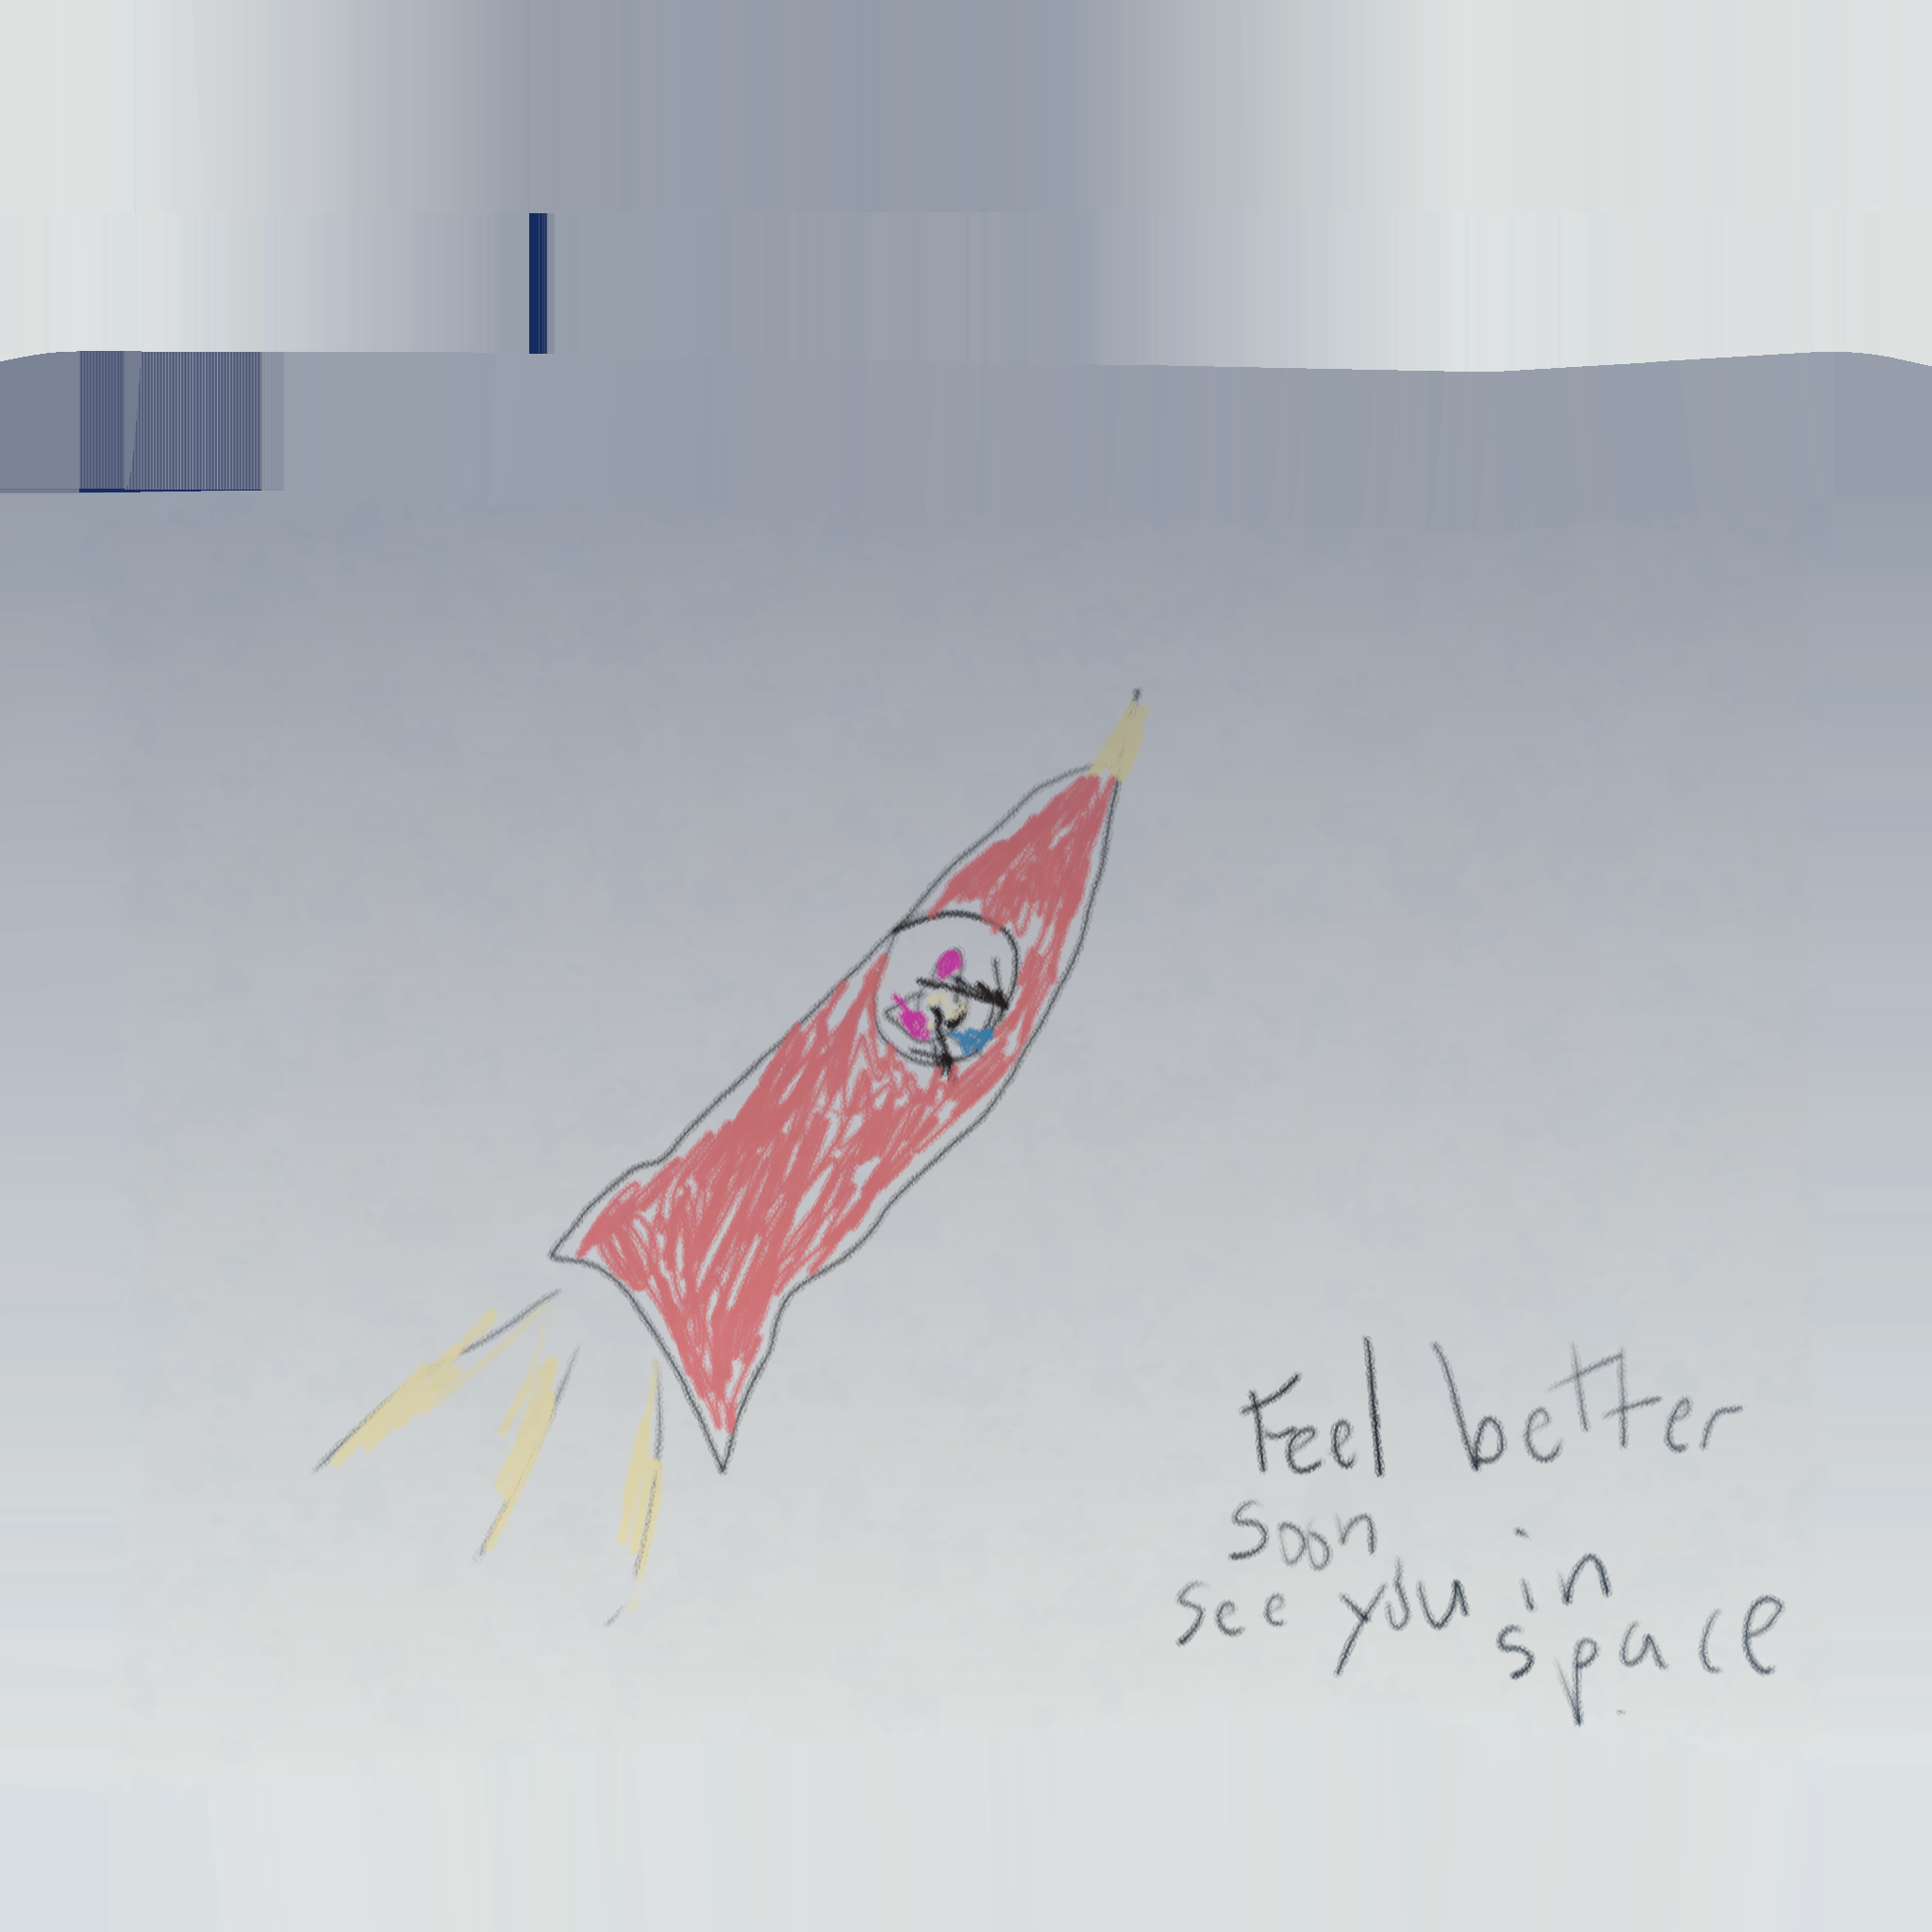 Feel better
soon
see you in
space